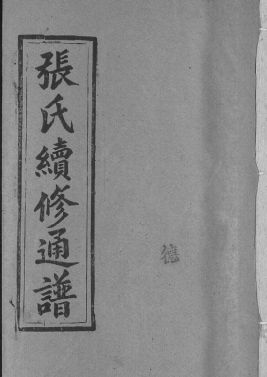 張氏續修通譜
德